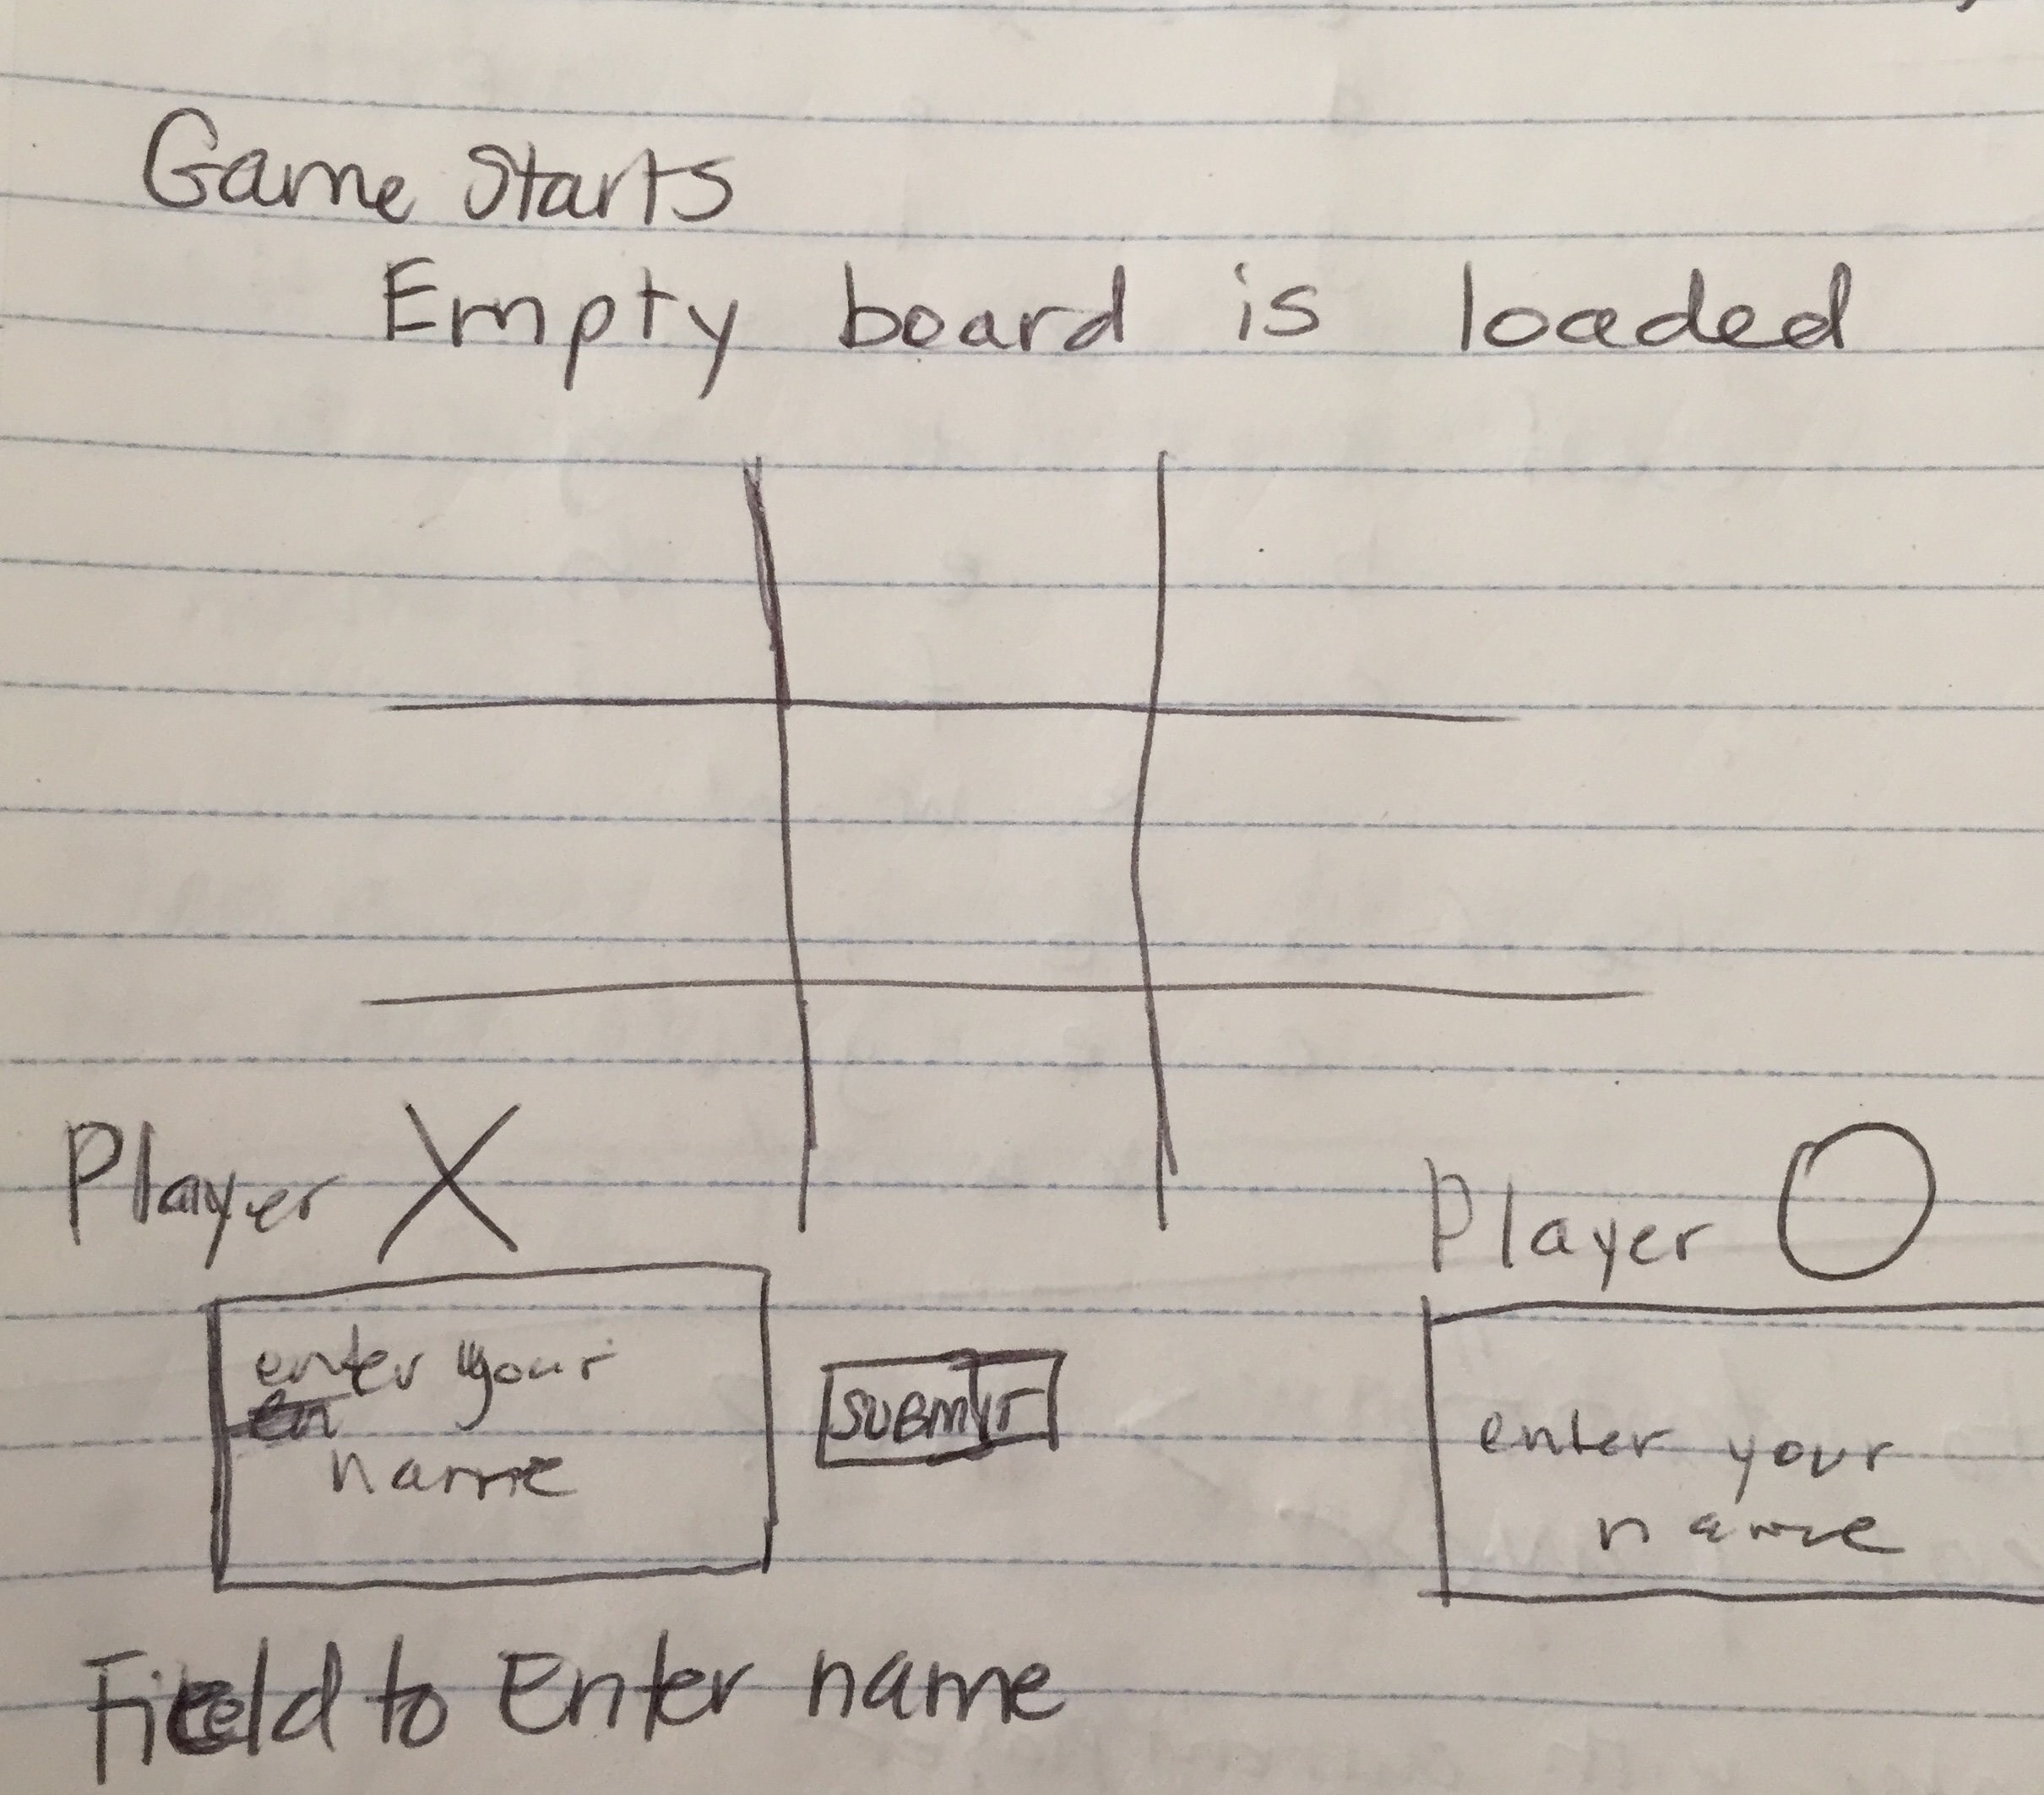 Game Starts
Empty board is loaded
Player X
Player O
enter your
name
SUBMIT
enter your
name
Field to Enter name